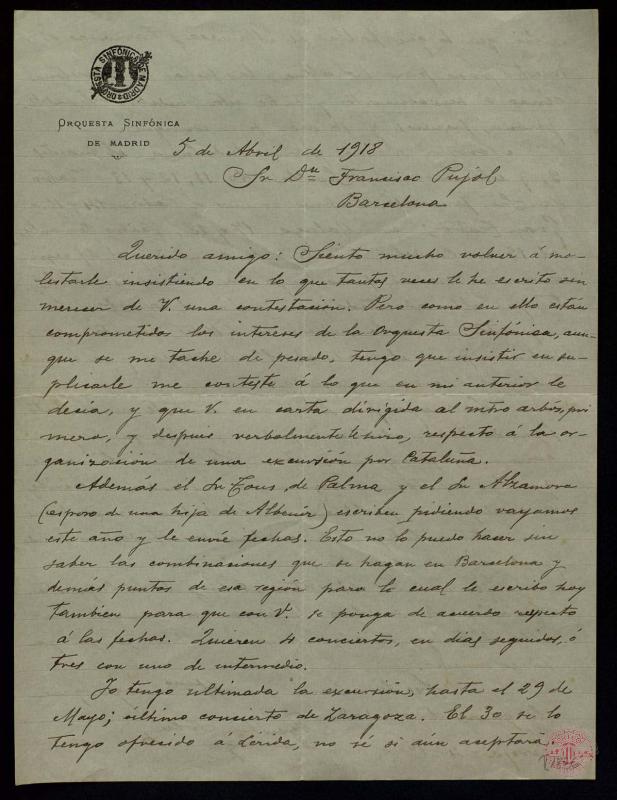 ORQUESTA SINFÓNICA DE MADRID
ORQUESTA SINFÓNICA
DE MADRID
5 de Abril de 1918
Sr. Dn Francisco Pujol
Barcelona
Querido amigo: Siento mucho volver á mo-
lestarle insistiendo en lo que tantas veces le he escrito sin
merecer de V. una contestación. Pero como en ello están
comprometidos los intereses de la Orquesta Sinfónica, aun-
que se me tache de pesado, tengo que insistir en su-
plicarle me conteste á lo que en mi anterior le
decia, y que V. en carta dirigida al mtro Arbós, pri
mero, y despues verbalmente le hizo, respecto á la or-
ganización de una excursión por Cataluña.
Además el Sr Tous, de Palma y el Sr Alzamora
(esposo de una hija de Albeniz) escriben pidiendo vayamos
este año y le envie fechas. Esto no lo puedo hacer sin
saber las combinaciones que se hagan en Barcelona y
demás puntos de esa región para lo cual le escribo hoy
tambien para que con V. se ponga de acuerdo respecto
á las fechas. Quieren 4 conciertos, en dias seguidos, ó
tres con uno de intermedio.
Yo tengo ultimada la excursión, hasta el 29 de
Mayo; último concierto de Zaragoza. El 30 se lo
tengo ofrecido á Lérida, no sé si aún aceptará.